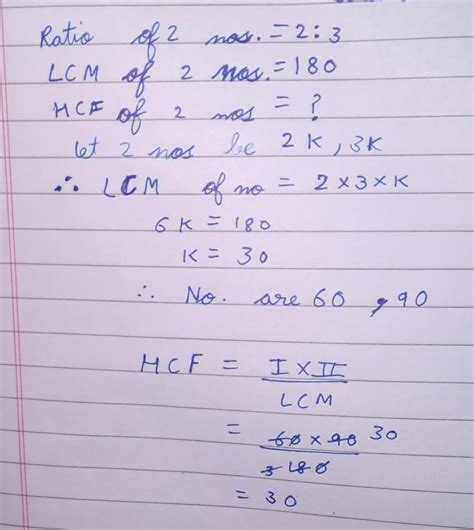 Ratio of 2 nos. = 2:3
LCM of 2 nos. = 180
HCF of 2 nos = ?
let 2 nos be 2K, 3K
∴ LCM of no = 2×3×K
6K = 180
K = 30
∴ No. are 60, 90
HCF = I × II
LCM
= 60 × 90 30
3 180
= 30